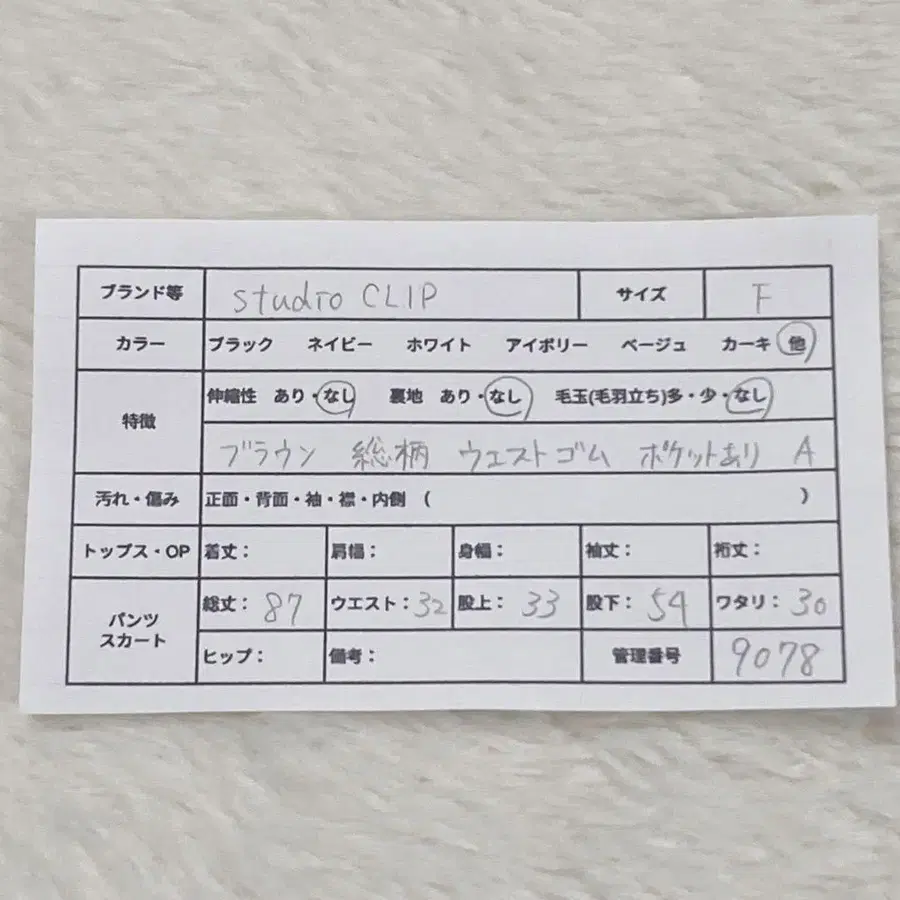 ブランド等 studio CLIP サイズ F
カラー ブラック ネイビー ホワイト アイボリー ベージュ カーキ 他
特徴 伸縮性 あり・なし 裏地 あり・なし 毛玉(毛羽立ち)多・少・なし
ブラウン 総柄 ウエストゴム ポケットあり A
汚れ・傷み 正面・背面・袖・襟・内側 ( )
トップス・OP 着丈: 肩幅: 身幅: 袖丈: 裄丈:
パンツ スカート 総丈: 87 ウエスト: 32 股上: 33 股下: 54 ワタリ: 30
ヒップ: 備考: 管理番号 9078